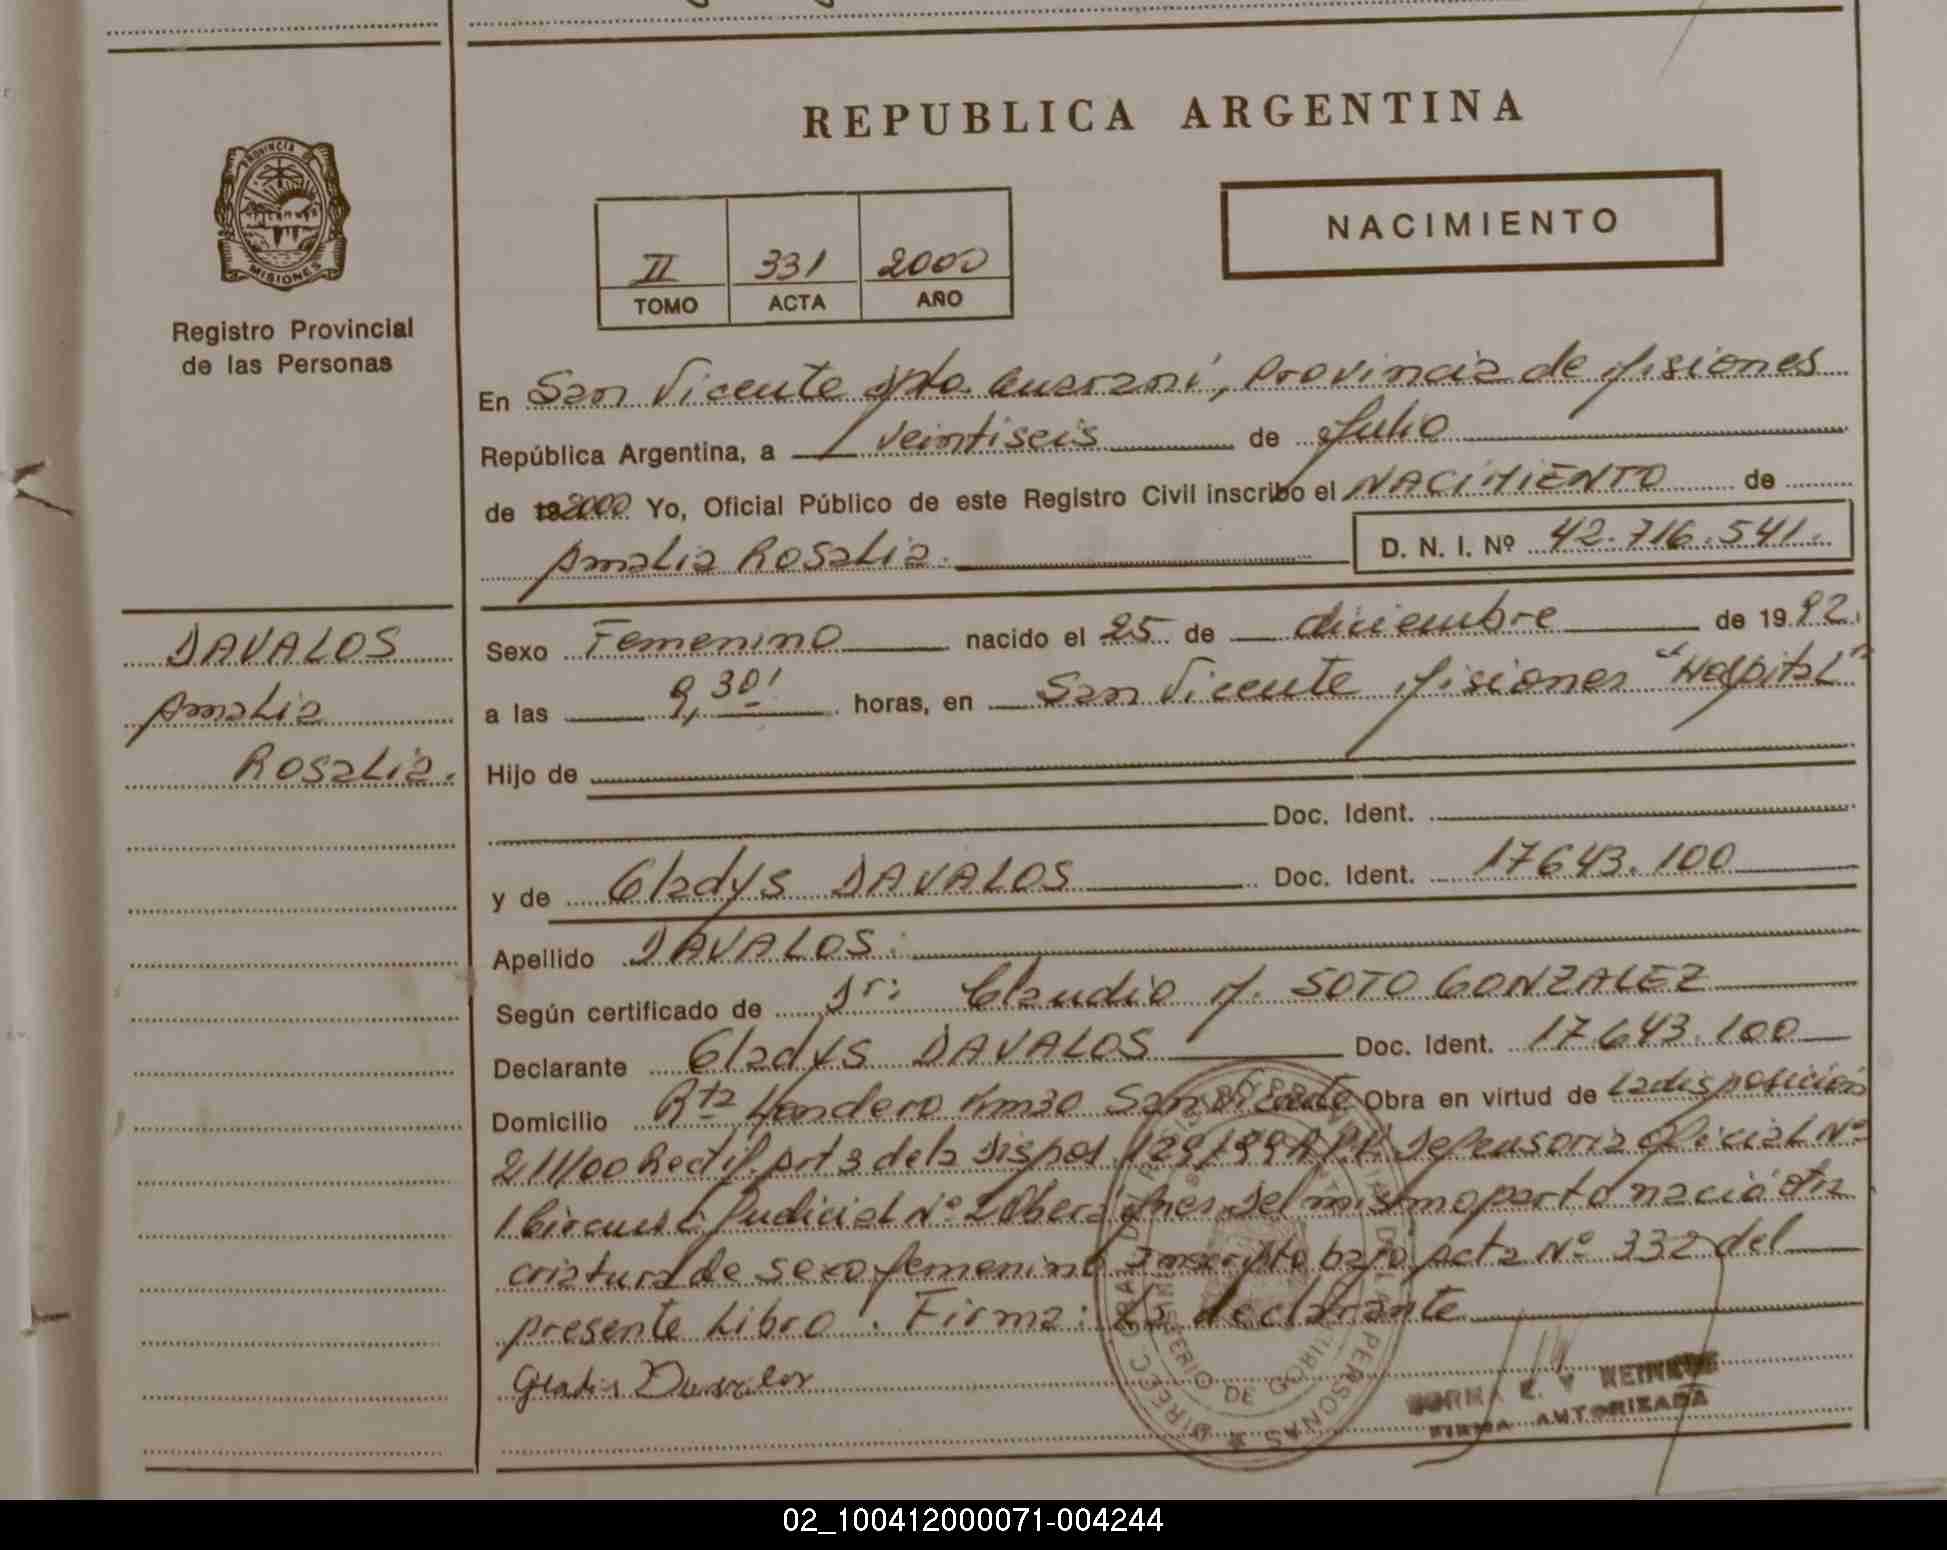 REPUBLICA ARGENTINA
PROVINCIA DE
MISIONES
Registro Provincial
de las Personas
II 331 2000
TOMO ACTA AÑO
NACIMIENTO
En San Vicente Dpto. Guaraní, Provincia de Misiones
República Argentina, a veintiseis de Julio
de 19 2000 Yo, Oficial Público de este Registro Civil inscribo el NACIMIENTO de
Amalia Rosalia.
D. N. I. Nº 42.716.541.
DAVALOS
Amalia
Rosalia.
Sexo Femenino nacido el 25 de diciembre de 19 92.
a las 9,30' horas, en San Vicente Misiones "Hospital"
Hijo de
Doc. Ident.
y de Gladys DAVALOS Doc. Ident. 17643.100
Apellido DAVALOS.
Según certificado de Dr: Claudio M. SOTO GONZALEZ
Declarante Gladys DAVALOS Doc. Ident. 17.643.100
Domicilio Rta Km30 San Vicente Obra en virtud de la disposición
211/00 Rectif. Art 3 de la Dispos. 129/99 Defensoria Oficial Nº
1 Judicial Nº 2 Oberá Mnes. Del mismo parto nació otra
criatura de sexo femenino Inscripto bajo Acta Nº 332 del
presente Libro. Firma: La declarante
Gladis Davalos
FIRMA AUTORIZADA
DE PERSONAS
MINISTERIO DE GOBIERNO
02_100412000071-004244